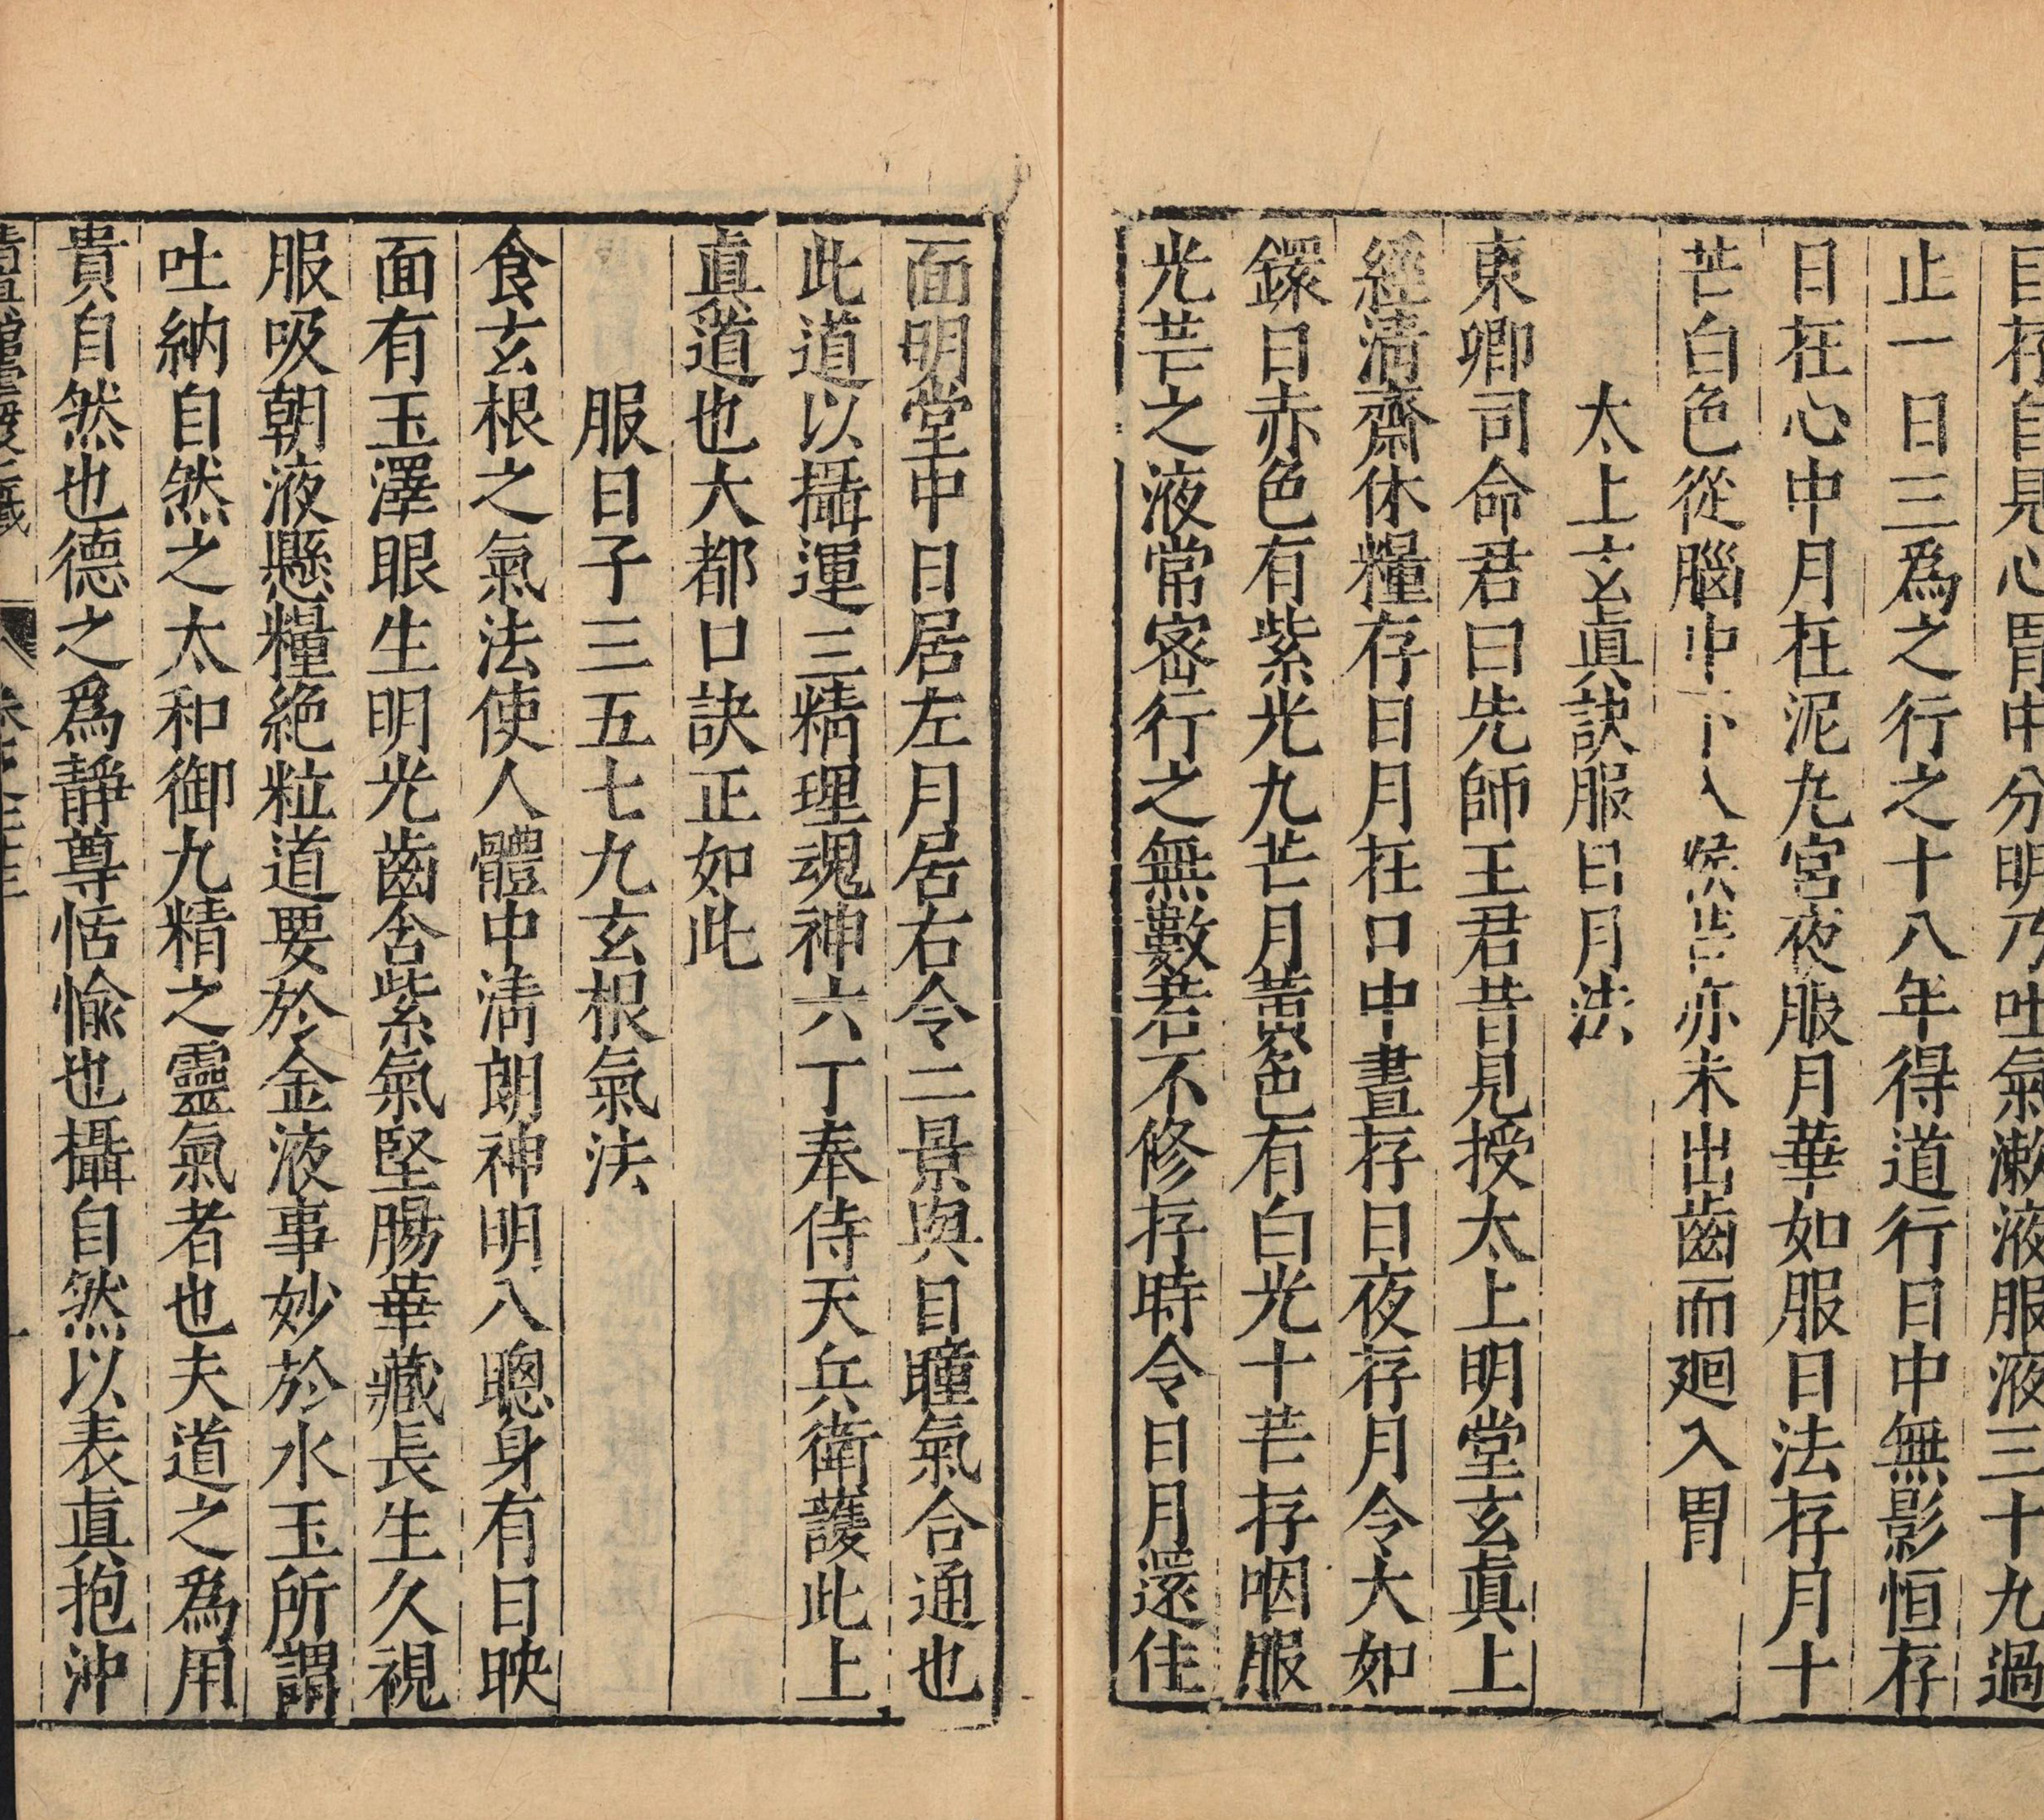 目存自見心胃中分明乃吐氣漱液服液三十九過
止一日三爲之行之十八年得道行日中無影恒存
日在心中月在泥九宮夜服月華如服日法存月十
芒白色從腦中下入喉芒亦未出齒而廻入胃
太上玄眞訣服日月法
東卿司命君曰先師王君昔見授太上明堂玄眞上
經清齋休糧存日月在口中晝存日夜存月令大如
鐶日赤色有紫光九芒月黃色有白光十芒存咽服
光芒之液常密行之無數若不修存時令日月還住
面明堂中日居左月居右令二景與目瞳氣合通也
此道以攝運三精理魂神六丁奉侍天兵衛護此上
眞道也大都口訣正如此
服日子三五七九玄根氣法
食玄根之氣法使人體中清朗神明八聰身有日映
面有玉澤眼生明光齒含紫氣堅腸華藏長生久視
服吸朝液懸糧絶粒道要於金液事妙於水玉所謂
吐納自然之太和御九精之靈氣者也夫道之爲用
貴自然也德之爲靜尊恬愉也攝自然以表眞抱沖